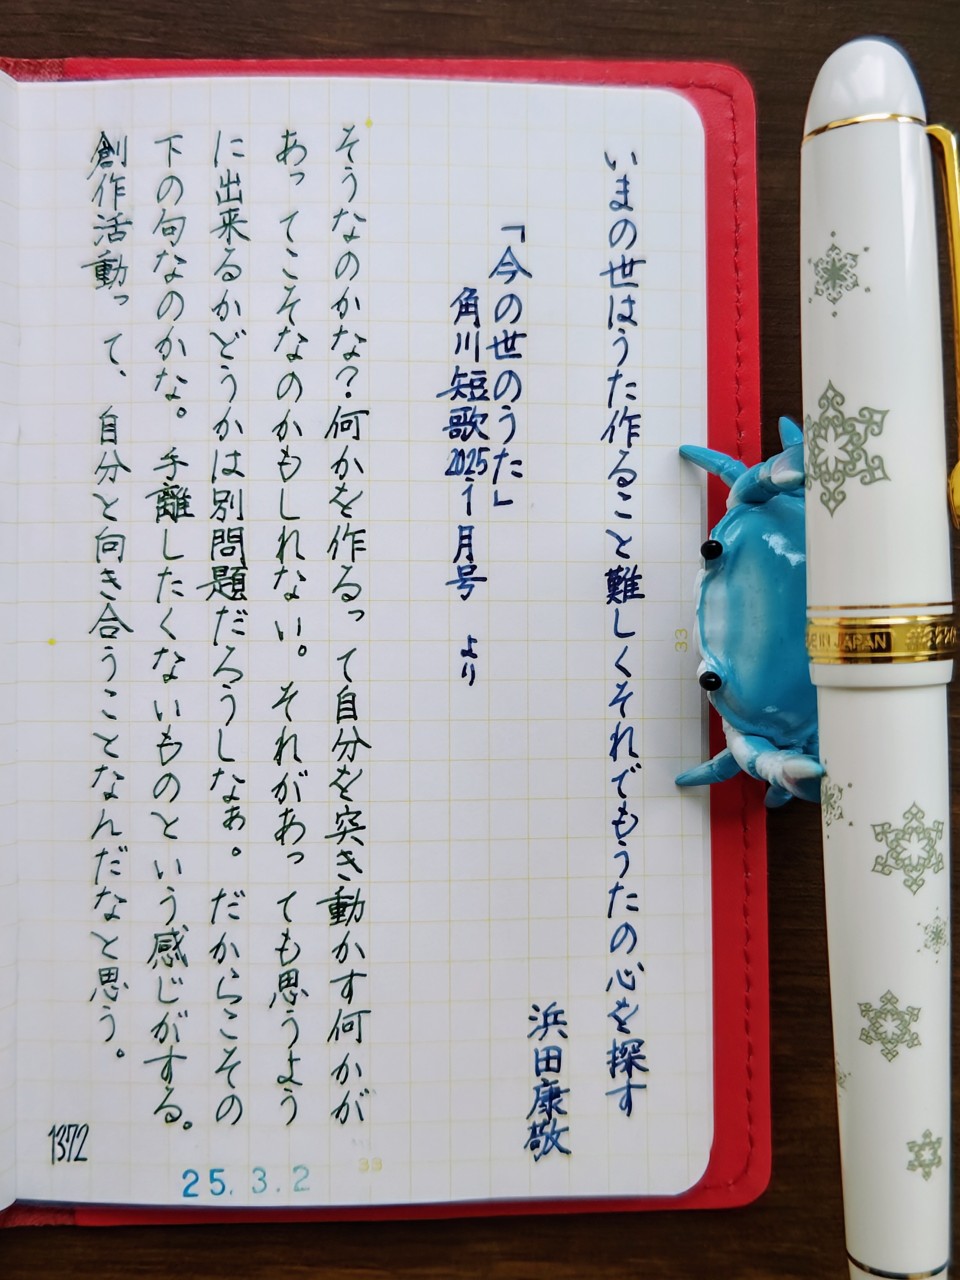 いまの世はうた作ること難しくそれでもうたの心を探す
浜田康敬
「今の世のうた」
角川短歌2025年1月号 より
そうなのかな?何かを作るって自分を突き動かす何かが
あってこそなのかもしれない。それがあっても思うよう
に出来るかどうかは別問題だろうしなぁ。だからこその
下の句なのかな。手離したくないものという感じがする。
創作活動って、自分と向き合うことなんだなと思う。
1372
25.3.2
33
33
JAPAN